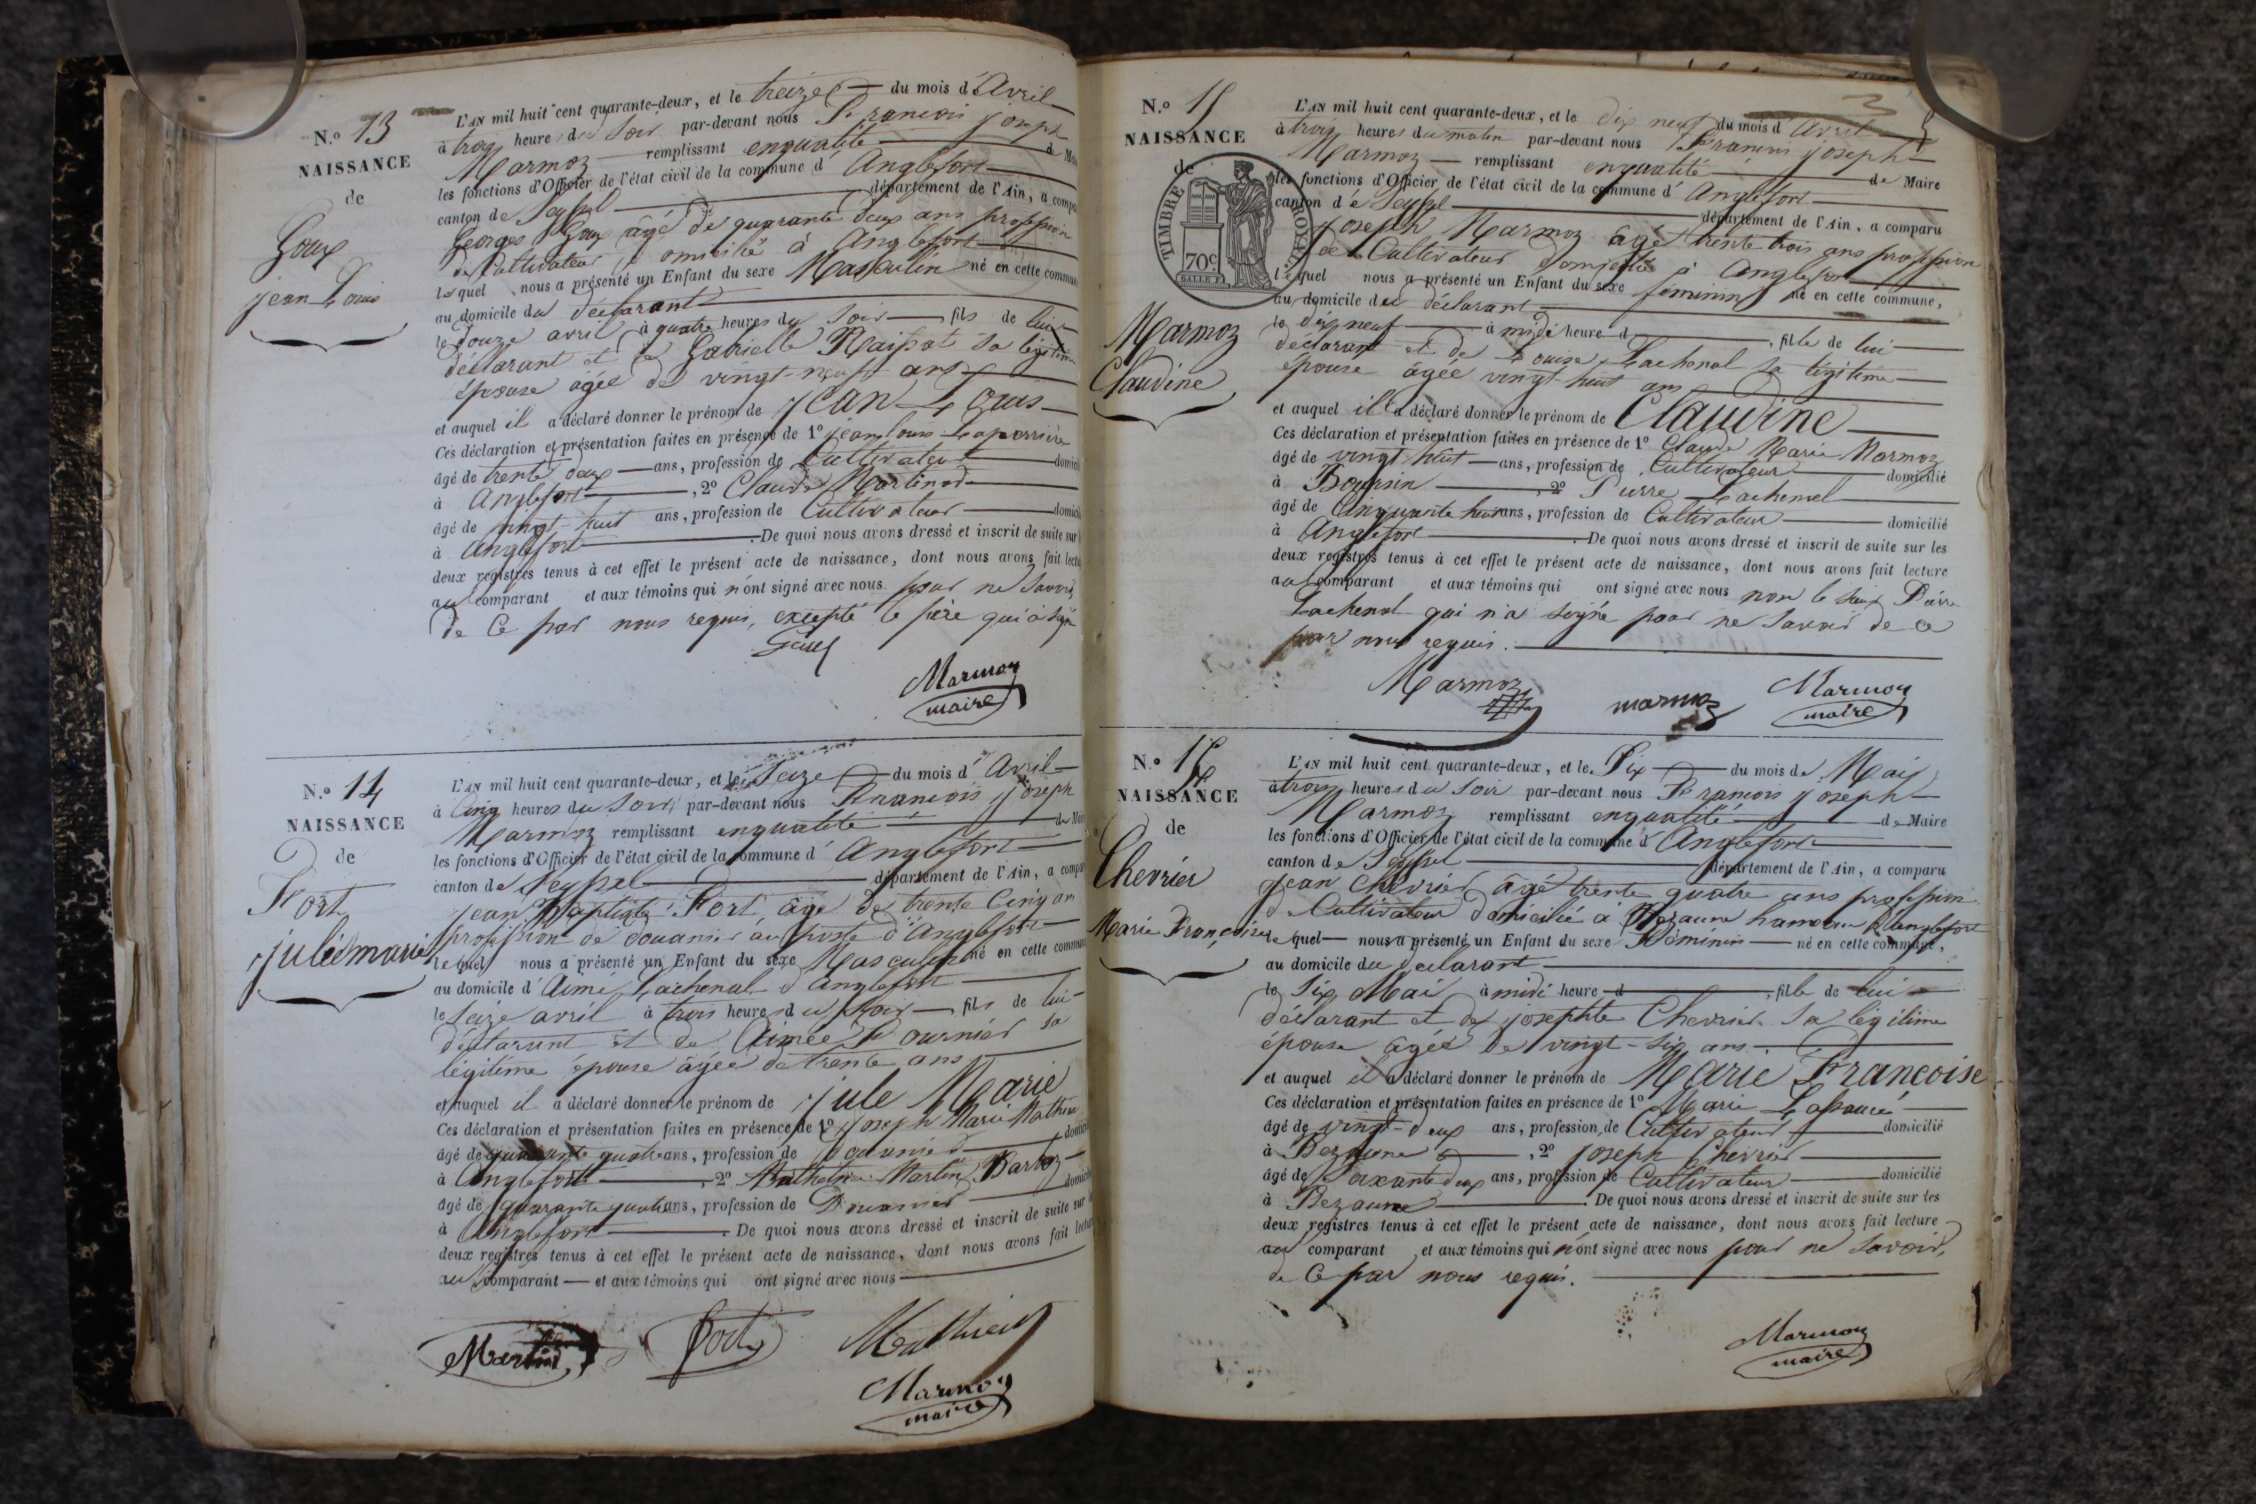 N.º 13
NAISSANCE
de
Goux
jean Louis
L'AN mil huit cent quarante-deux, et le treize du mois d'Avril
à trois heures du Soir par-devant nous François joseph
Marmoz remplissant enqualité de Mai
les fonctions d'Officier de l'état civil de la commune d'Anglefort
canton de Seyssel département de l'Ain, a compa
Georges Goux âgé de quarante deux ans proffesion
de Cultivateur domicilié à Anglefort
lequel nous a présenté un Enfant du sexe Masculin né en cette commun
au domicile du déclarant
le douze avril à quatre heures du Soir fils de lui
déclarant et de Gabrielle Raisat sa légitime
épouse âgée de vingt-neuf ans
et auquel il a déclaré donner le prénom de jean Louis
Ces déclaration et présentation faites en présence de 1º jean louis Laperrière
âgé de trente deux ans, profession de Cultivateur domicil
à Anglefort , 2º Claude Martinod
âgé de vingt-huit ans, profession de Cultivateur domicil
à Anglefort . De quoi nous avons dressé et inscrit de suite sur
deux registres tenus à cet effet le présent acte de naissance, dont nous avons fait lectu
au comparant et aux témoins qui n'ont signé avec nous pour ne Savoir
de Ce par nous requis, excepté le père qui a signé
Marmoz
maire
N.º 14
NAISSANCE
de
Fort
jule marie
L'AN mil huit cent quarante-deux, et le Seize du mois d'Avril
à Cinq heures du Soir par-devant nous François joseph
Marmoz remplissant enqualité de Mai
les fonctions d'Officier de l'état civil de la commune d'Anglefort
canton de Seyssel département de l'Ain, a compa
jean Baptiste Fort, âgé de trente Cinq an
profession de douanier au poste d'Anglefort
lequel nous a présenté un Enfant du sexe Masculin né en cette commun
au domicile d'Aimé Lachenal d'Anglefort
le Seize avril à trois heures du soir fils de lui
déclarant et de Aimée Fournier sa
légitime épouse âgée de trente ans
et auquel il a déclaré donner le prénom de jule Marie
Ces déclaration et présentation faites en présence de 1º joseph Marie Mathieu
âgé de quarante quatre ans, profession de domici
à Anglefort , 2º Martin Bartoz
âgé de quarante quatre ans, profession de Douanier domicil
à Anglefort . De quoi nous avons dressé et inscrit de suite sur
deux registres tenus à cet effet le présent acte de naissance, dont nous avons fait lectur
au comparant et aux témoins qui ont signé avec nous
Martin fort Mathieu
Marmoz
maire
N.º 15
NAISSANCE
de
TIMBRE ROYAL
70c
Marmoz
Claudine
L'AN mil huit cent quarante-deux, et le dix neuf du mois d'avril
à trois heures du matin par-devant nous François joseph
Marmoz remplissant enqualité de Maire
les fonctions d'Officier de l'état civil de la commune d'Anglefort
canton de Seyssel département de l'Ain, a comparu
joseph Marmoz âgé trente trois ans proffesion
de Cultivateur domicilié à Anglefort
lequel nous a présenté un Enfant du sexe féminin né en cette commune,
au domicile du déclarant
le dix neuf à midi heure d , fille de lui
déclarant et de Louise Lachenal sa légitime
épouse âgée vingt-huit ans
et auquel il a déclaré donner le prénom de Claudine
Ces déclaration et présentation faites en présence de 1º Claude Marie Marmoz
âgé de vingt-huit ans, profession de Cultivateur domicilié
à Boursin , 2º Pierre Lachenal
âgé de Cinquante huit ans, profession de Cultivateur domicilié
à Anglefort . De quoi nous avons dressé et inscrit de suite sur les
deux registres tenus à cet effet le présent acte de naissance, dont nous avons fait lecture
au comparant et aux témoins qui ont signé avec nous non le sieur Pierre
Lachenal qui n'a signé pour ne Savoir de ce
par nous requis.
Marmoz marmoz Marmoz
maire
N.º 16
NAISSANCE
de
Chevrier
Marie Françoise
L'AN mil huit cent quarante-deux, et le Six du mois de Mai
à trois heures du Soir par-devant nous François joseph
Marmoz remplissant enqualité de Maire
les fonctions d'Officier de l'état civil de la commune d'Anglefort
canton de Seyssel département de l'Ain, a comparu
jean Chevrier âgé trente quatre ans profession
de Cultivateur domicilié à Bezaune hameau d'Anglefort
lequel nous a présenté un Enfant du sexe Féminin né en cette commune,
au domicile du declarant
le Six Mai à midi heure d , fille de lui
déclarant et de josephte Chevrier Sa légitime
épouse âgée de vingt-six ans
et auquel il a déclaré donner le prénom de Marie Françoise
Ces déclaration et présentation faites en présence de 1º Marie
âgé de vingt-deux ans, profession de Cultivateur domicilié
à Bezaune , 2º joseph Chevrier
âgé de Soixante deux ans, profession de Cultivateur domicilié
à Bezaune . De quoi nous avons dressé et inscrit de suite sur les
deux registres tenus à cet effet le présent acte de naissance, dont nous avons fait lecture
au comparant et aux témoins qui n'ont signé avec nous pour ne Savoir,
de Ce par nous requis.
Marmoz
maire